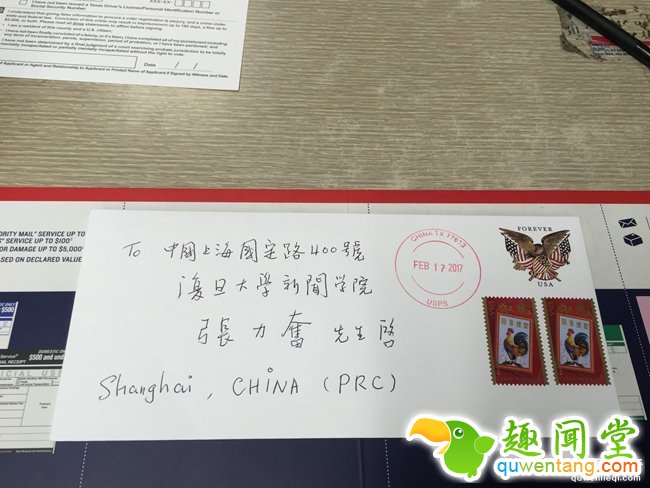 XXX-XX-
have not been issued a Texas Driver's License/Personal Identification Number or
Social Security Number
I understand that giving false information to procure a voter registration is perjury, and a crime under
state and federal law. Conviction of this crime may result in imprisonment up to 180 days, a fine up to
$2,000, or both. Please read all three statements to affirm before signing.
I am a resident of this county and a U.S. citizen.
I have not been finally convicted of a felony, or if a felon, I have completed all of my punishment including
any term of incarceration, parole, supervision, period of probation, or I have been pardoned, and
I have not been determined by a final judgment of a court exercising probate jurisdiction to be totally
mentally incapacitated or partially mentally incapacitated without the right to vote.
Date / /
of Applicant or Agent and Relationship to Applicant or Printed Name of Applicant if Signed by Witness and Date
ORITY MAIL® SERVICE UP TO
S™ SERVICE UP TO $100¹
OR DAMAGE UP TO $5,000
BASED ON DECLARED VALUE
To 中國上海國定路400號
復旦大學新聞学院
張力奮 先生啓
Shanghai, CHINA (PRC)
CHINA TX 77613
FEB 17 2017
USPS
FOREVER
USA
趣闻堂
quwentang.com